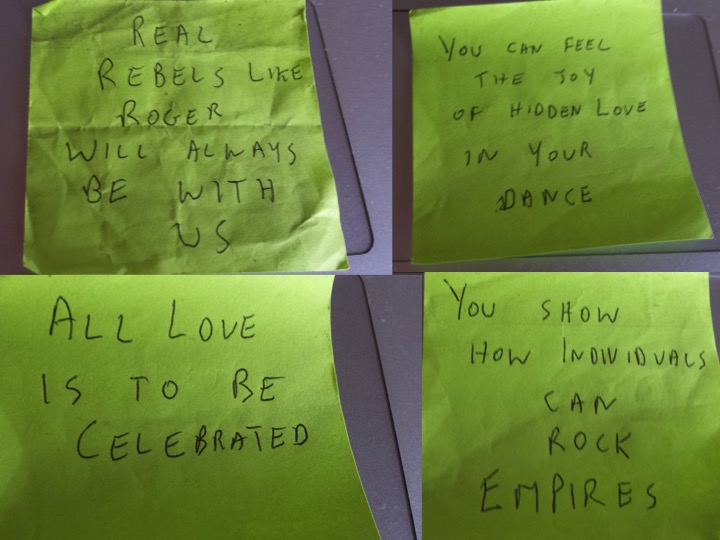 REAL
REBELS LIKE
ROGER
WILL ALWAYS
BE WITH
US
YOU CAN FEEL
THE JOY
OF HIDDEN LOVE
IN YOUR
DANCE
ALL LOVE
IS TO BE
CELEBRATED
YOU SHOW
HOW INDIVIDUALS
CAN
ROCK
EMPIRES